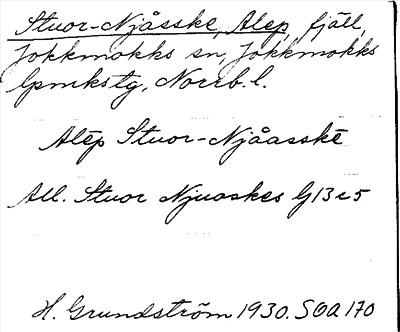 Stuor-Njåsske, Alep, fjäll,
Jokkmokks sn, Jokkmokks
lpmkstg, Norrb. l.
Alēp Stuor-Njåasskē
All. Stuor Njuoskes G13 r5
H. Grundström 1930. SOA 170